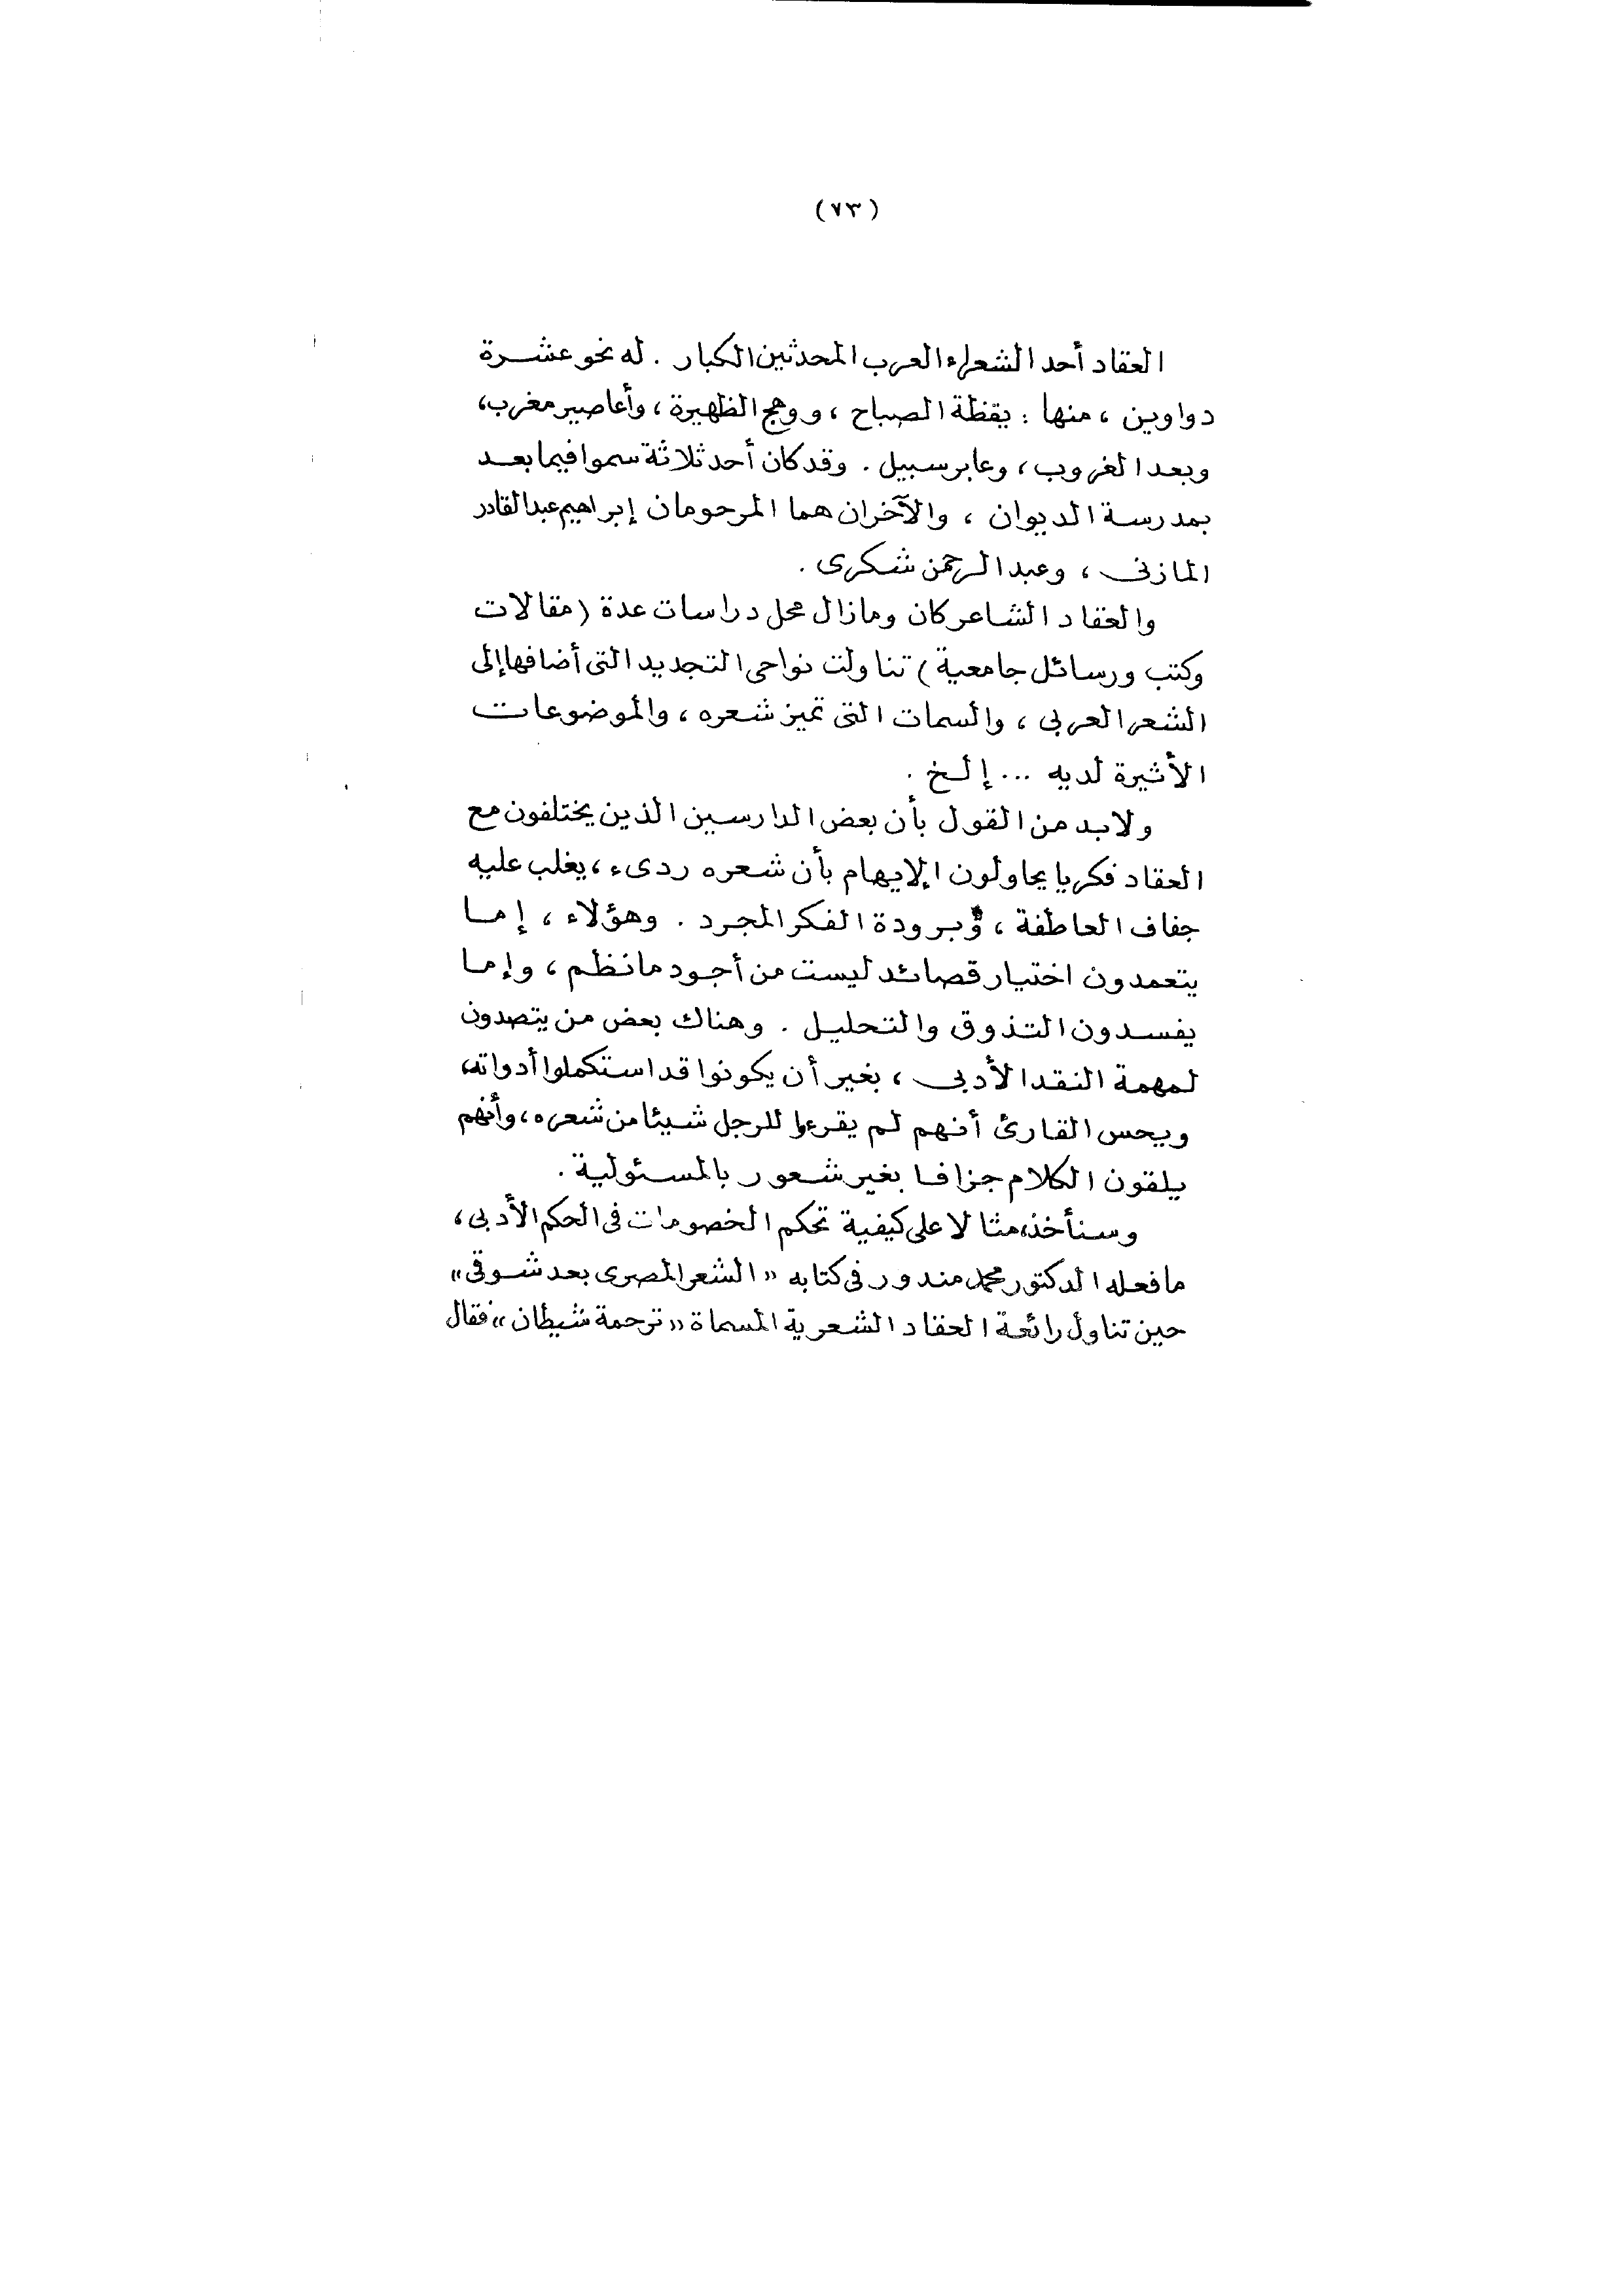 (٧٣)
العقاد أحد الشعراء العرب المحدثين الكبار . له نحو عشرة
دواوين ، منها : يقظة الصباح ، ووهج الظهيرة ، وأعاصير مغرب،
وبعد الغروب ، وعابر سبيل . وقد كان أحد ثلاثة سموا فيما بعد
بمدرسة الديوان ، والآخران هما المرحومان إبراهيم عبد القادر
المازنى ، وعبد الرحمن شكرى .
والعقاد الشاعر كان ومازال محل دراسات عدة (مقالات
وكتب ورسائل جامعية) تناولت نواحى التجديد التى أضافها إلى
الشعر العربى ، والسمات التى تميز شعره ، والموضوعات
الأثيرة لديه ... إلخ .
ولابد من القول بأن بعض الدارسين الذين يختلفون مع
العقاد فكريا يحاولون الإيهام بأن شعره ردىء ، يغلب عليه
جفاف العاطفة ، وبرودة الفكر المجرد . وهؤلاء ، إما
يتعمدون اختيار قصائد ليست من أجود مانظم ، وإما
يفسدون التذوق والتحليل . وهناك بعض من يتصدون
لمهمة النقد الأدبى ، بغير أن يكونوا قد استكملوا أدواته،
ويحس القارئ أنهم لم يقرءوا للرجل شيئا من شعره ، وأنهم
يلقون الكلام جزافا بغير شعور بالمسئولية .
وسنأخذ، مثالا على كيفية تحكم الخصومات فى الحكم الأدبى ،
مافعله الدكتور محمد مندور فى كتابه «الشعر المصرى بعد شوقى»
حين تناول رائعة العقاد الشعرية المسماة «ترجمة شيطان» فقال